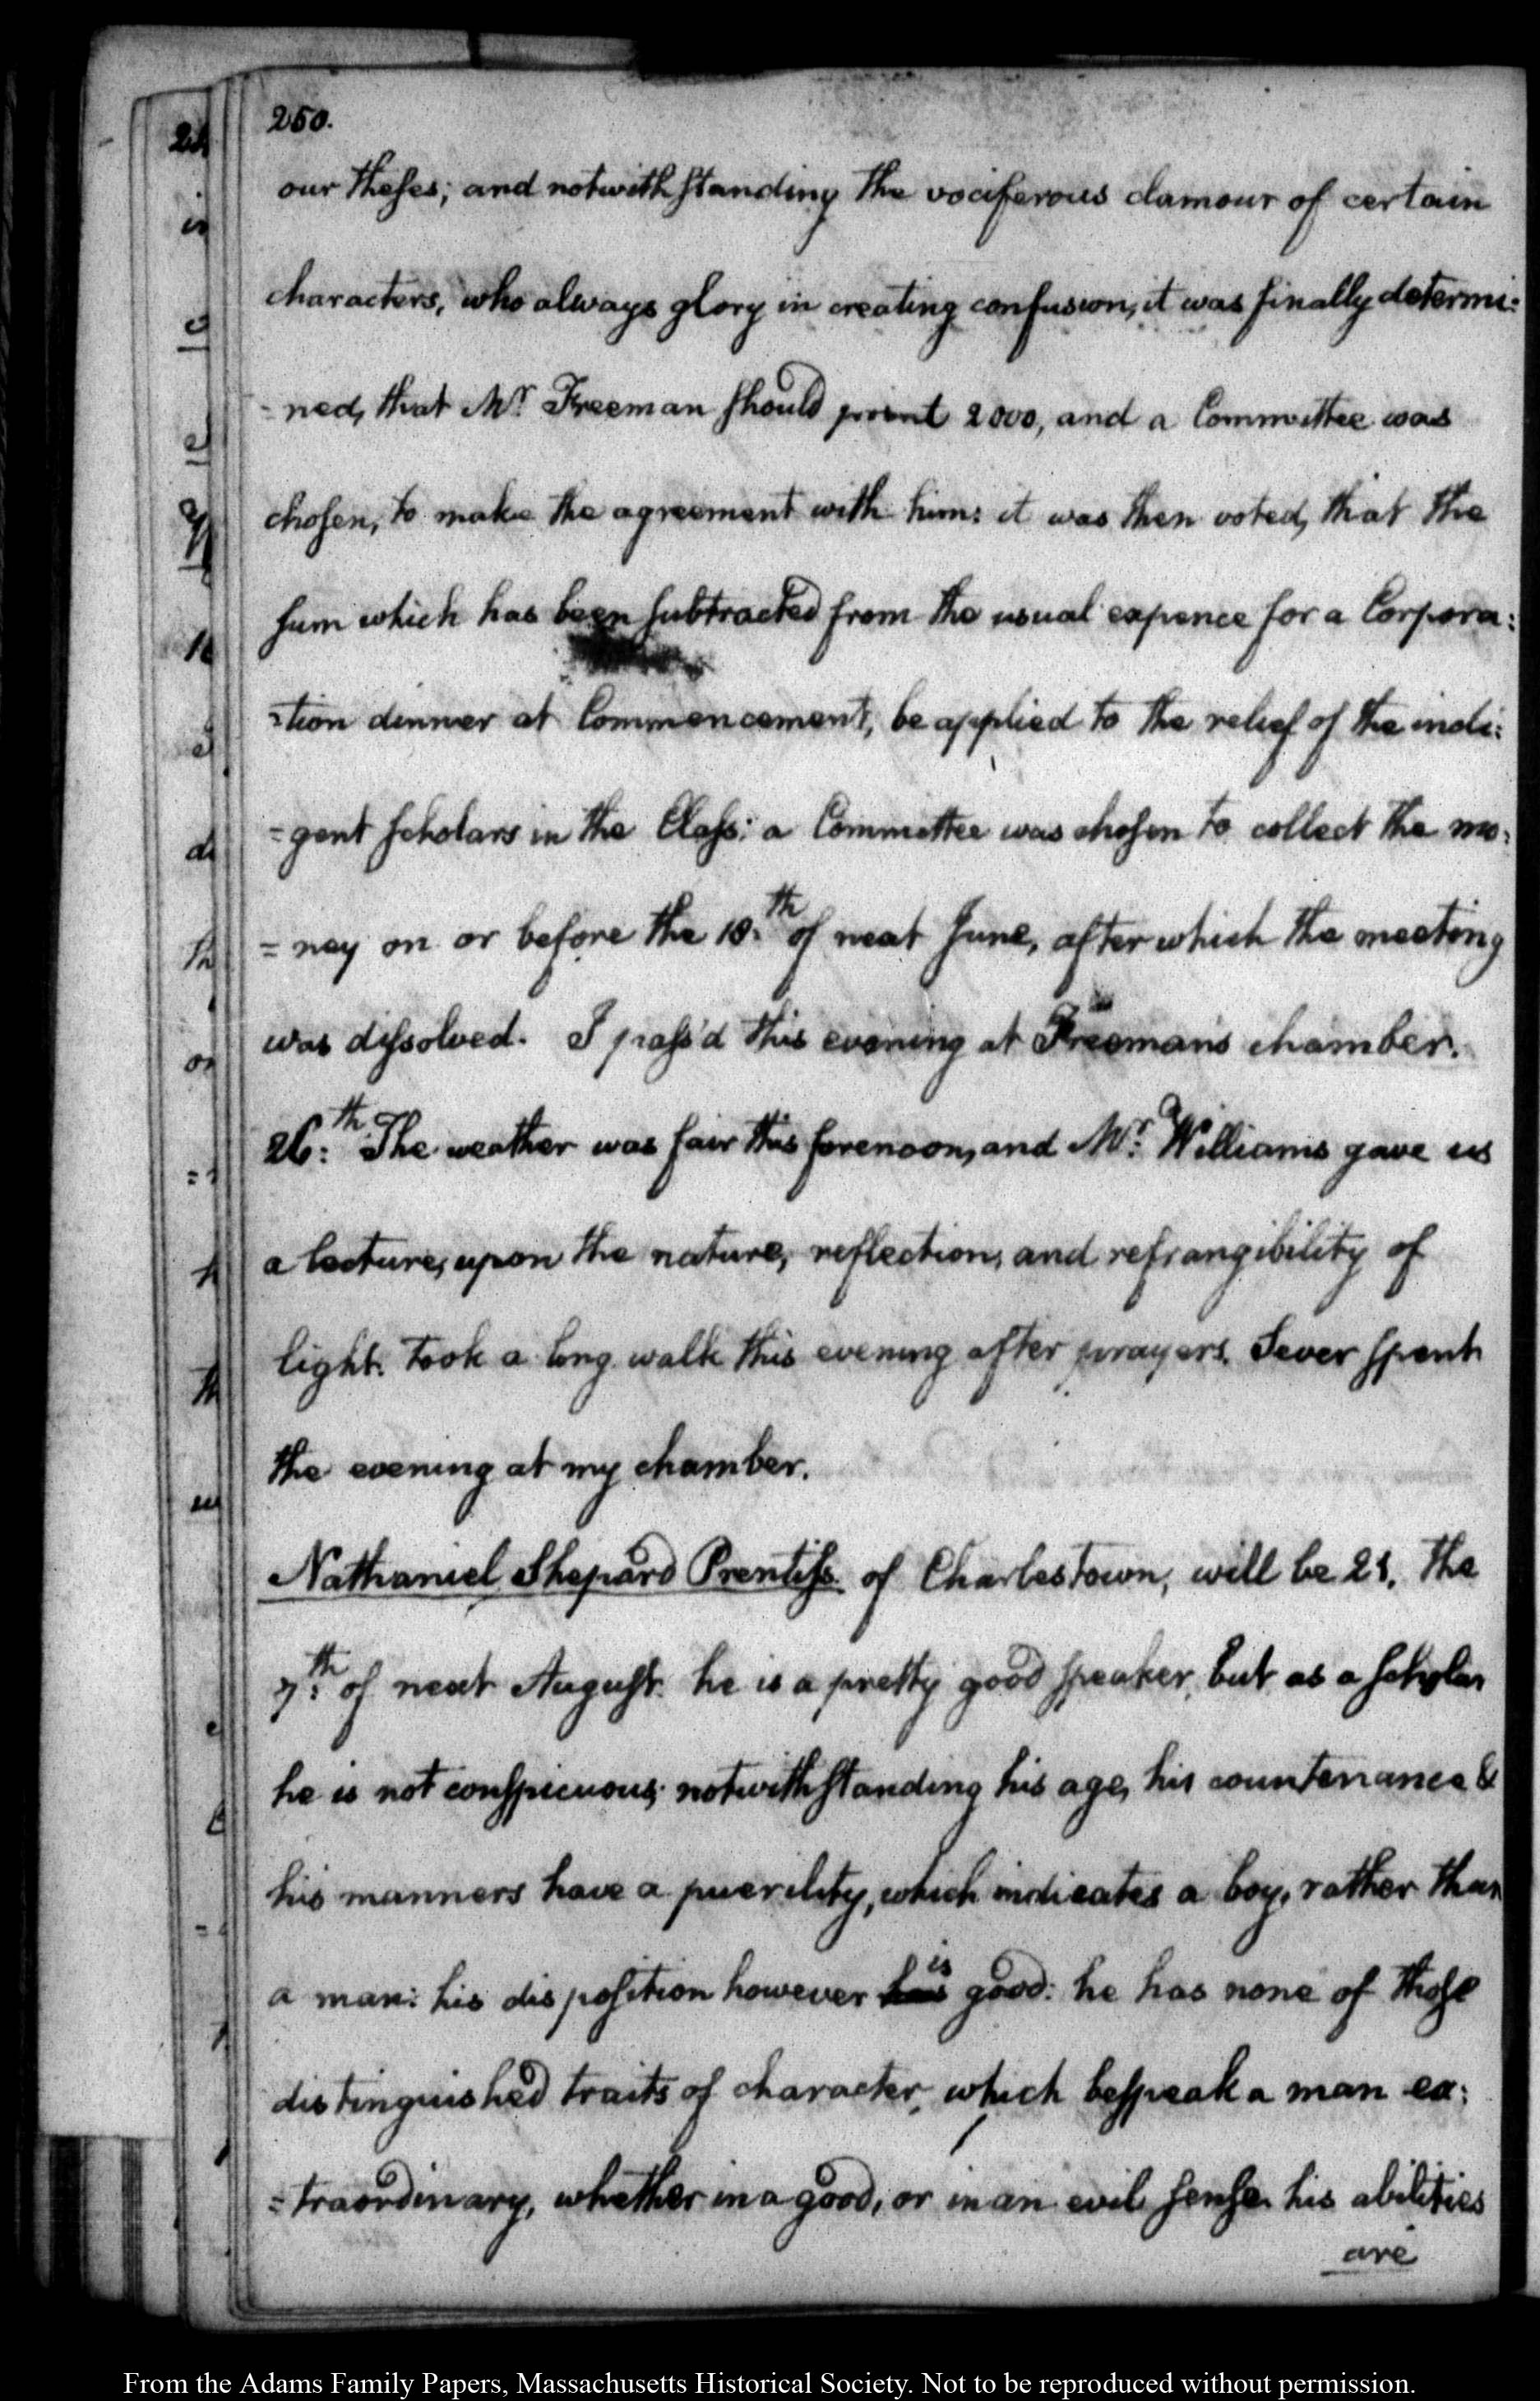 250.
our theses; and notwithstanding the vociferous clamour of certain
characters, who always glory in creating confusion, it was finally determi:
=ned, that Mr Freeman should print 2000, and a Committee was
chosen, to make the agreement with him: it was then voted, that the
sum which has been subtracted from the usual expence for a Corpora:
=tion dinner at Commencement, be applied to the relief of the indi:
=gent scholars in the Class: a Committee was chosen to collect the mo:
=ney on or before the 10:th of next June, after which the meeting
was dissolved. I pass'd this evening at Freeman's chamber.
26:th The weather was fair this forenoon, and Mr: Williams gave us
a lecture, upon the nature, reflection, and refrangibility of
light. Took a long walk this evening after prayers. Sever spent
the evening at my chamber.
Nathaniel Shepard Prentiss. of Charlestown, will be 21, the
7:th of next August. he is a pretty good speaker, but as a scholar
he is not conspicuous; notwithstanding his age, his countenance &
his manners have a puerility, which indicates a boy, rather than
a man: his disposition however has is good: he has none of those
distinguished traits of character, which bespeak a man ex:
=traordinary, whether in a good, or in an evil sense. his abilities
are
From the Adams Family Papers, Massachusetts Historical Society. Not to be reproduced without permission.